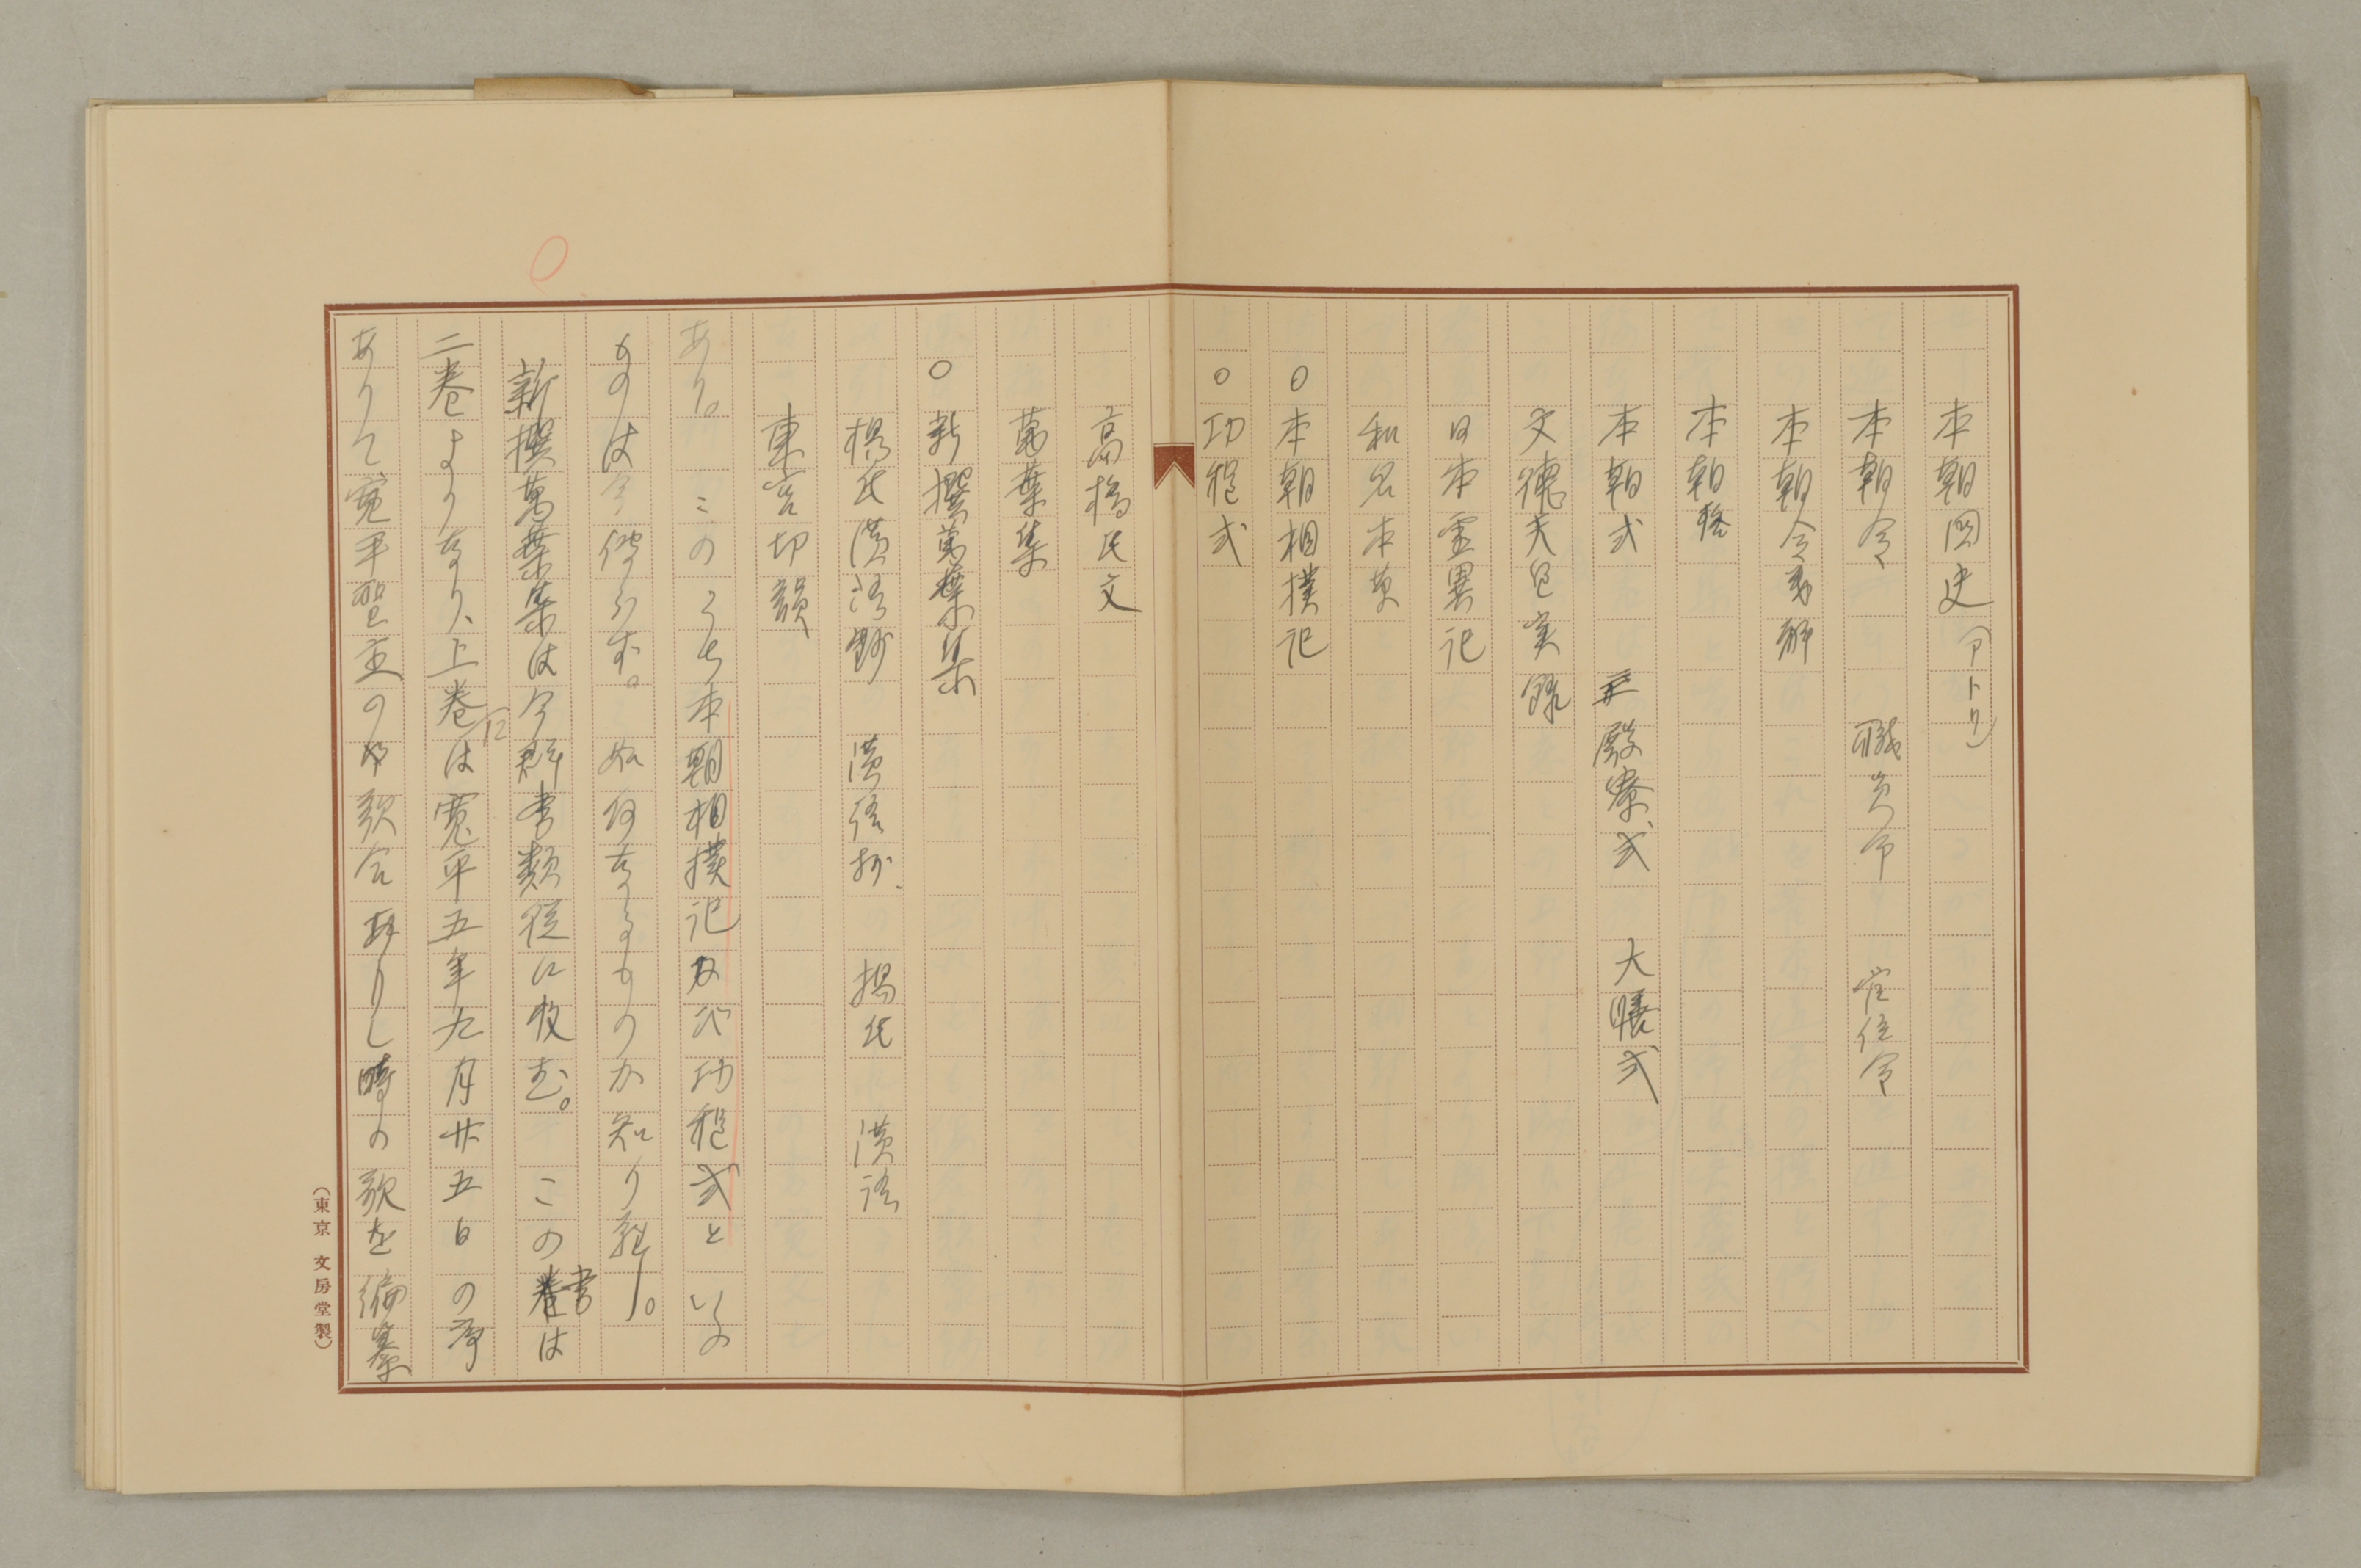 本朝国史(アトリ)
本朝令　職員令　官位令
本朝令義解
本朝格
本朝式　主殿寮式　大膳式
文徳天皇実録
日本霊異記
和名本草
○本朝相撲記
○功程式
高橋氏文
萬葉集
○新撰萬葉集
楊氏漢語鈔　漢語抄、　楊氏　漢語
東宮切韻
あり。　このうち本朝相撲記及び功程式といふ
ものは今傳らず。　如何なるものか知り難し。
新撰萬葉集は今群書類従に収む。　この書は
二巻よりなり、上巻には寛平五年九月廿五日の序
ありて、寛平聖主の御歌合ありし時の歌を編纂
(東京　文房堂製)